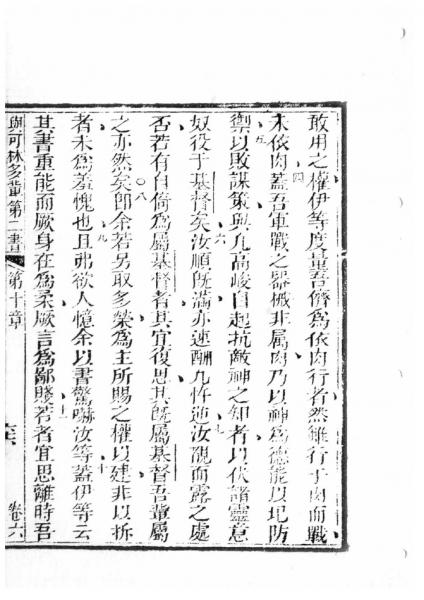 敢用之權伊等度量吾儕為依肉行者然雖行于肉而戰
未依肉四蓋吾軍戰之器械非屬肉乃以神為德能以圮防
禦五以敗謀策與凡高峻自起抗敵神之知者以伏諸靈意
奴役于基督矣六汝順旣滿亦速酬凡忤逆七汝覩而露之處
否若有自倚為屬基督者其宜復思其旣屬基督吾輩屬
之亦然矣八卽余若另取多榮為主所賜之權以建非以拆
者未為羞愧也且弗欲人憶余以書驚嚇汝等十蓋伊等云
其書重能而厥身在為柔厥言為鄙賤十一若者宜思離時吾
與可林多輩第二書 第十章 卷六